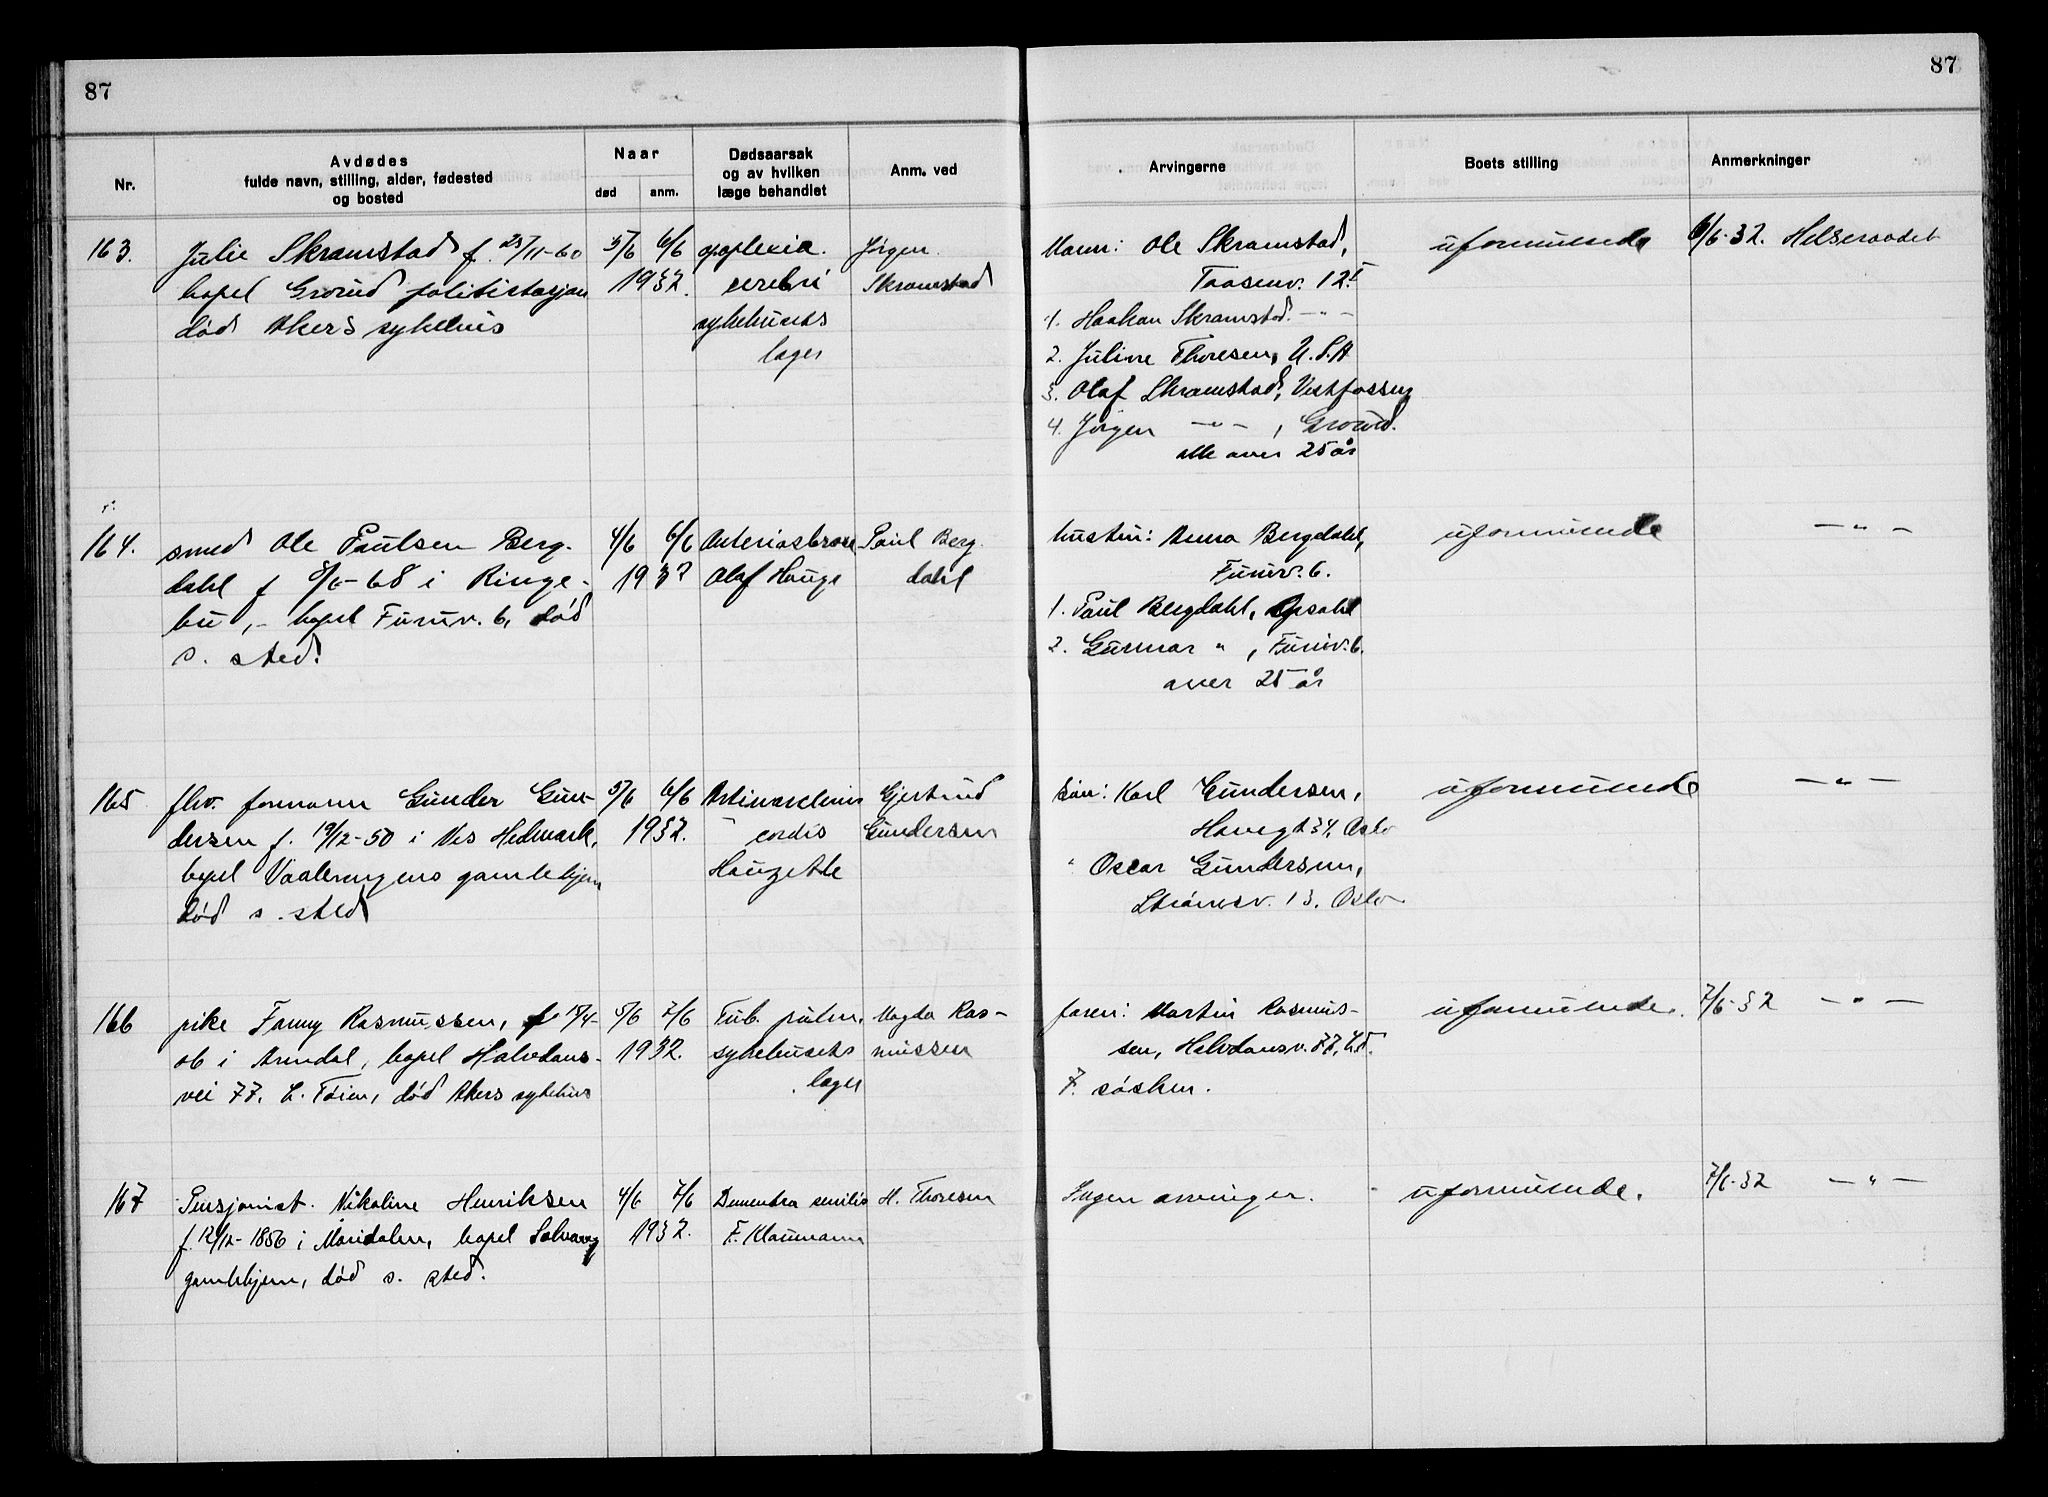 87
87
Nr.
Avdødes
fulde navn, stilling, alder, fødested
og bosted
Naar
død
anm.
Dødsaarsak
og av hvilken
læge behandlet
Anm. ved
Arvingerne
Boets stilling
Anmerkninger
163. Julie Skramstad f. 25/11-60 5/6 6/6 apoplexia Jørgen
bopel Grorud politistasjon 1932. cerebri Skramstad
død Akers sykehus sykehusets
læger
Mann: Ole Skramstad, uformuende 6/6-32. Helseraadet
Taasenv. 12 I
1. Haakon Skramstad -"-
2. Juline Thoresen, U.S.A
3. Olaf Skramstad, Vestfossen
4. Jørgen -"-, Grorud.
alle over 25 år
164. smed Ole Paulsen Berg- 4/6 6/6 Paul Berg-
dahl f 8/6-68 i Ringe- 1932 Olaf Hauge dahl
bu, - bopel Furuv. 6, død
s. sted.
hustru: Anna Bergdahl, uformuende -"-
Furuv. 6.
1. Paul Bergdahl, Opsahl
2. Gunnar ", Furuv. 6.
over 25 år
165 fhv. formann Gunder Gun- 5/6 6/6 Gjertrud
dersen f. 19/12-50 i Hedmark, 1932. cordis Gundersen
bopel Vaalerengens gamlehjem
død s. sted
Sønn: Karl Gundersen, uformuende -"-
34, Oslo
" Oscar Gundersen,
13, Oslo
166 pike Fanny Rasmussen, f 15/4- 5/6 7/6 Tub. pulm. Magda Ras-
06 i Arendal, bopel Halvdans- 1932. sykehusets mussen
vei 77, L. Tøien, død Akers sykehus læger
faren: Martin Rasmus- uformuende. 7/6-32 -"-
sen, Halvdansv. 77, L.T.
7 søsken.
167 Pensjonist. Nikoline Henriksen 4/6 7/6 Dementia senilis H. Thoresen
f. 12/12-1856 i Maridalen, bopel Solvang 1932. F. Klaumann
gamlehjem, død s. sted.
Ingen arvinger. uformuende. 7/6-32 -"-